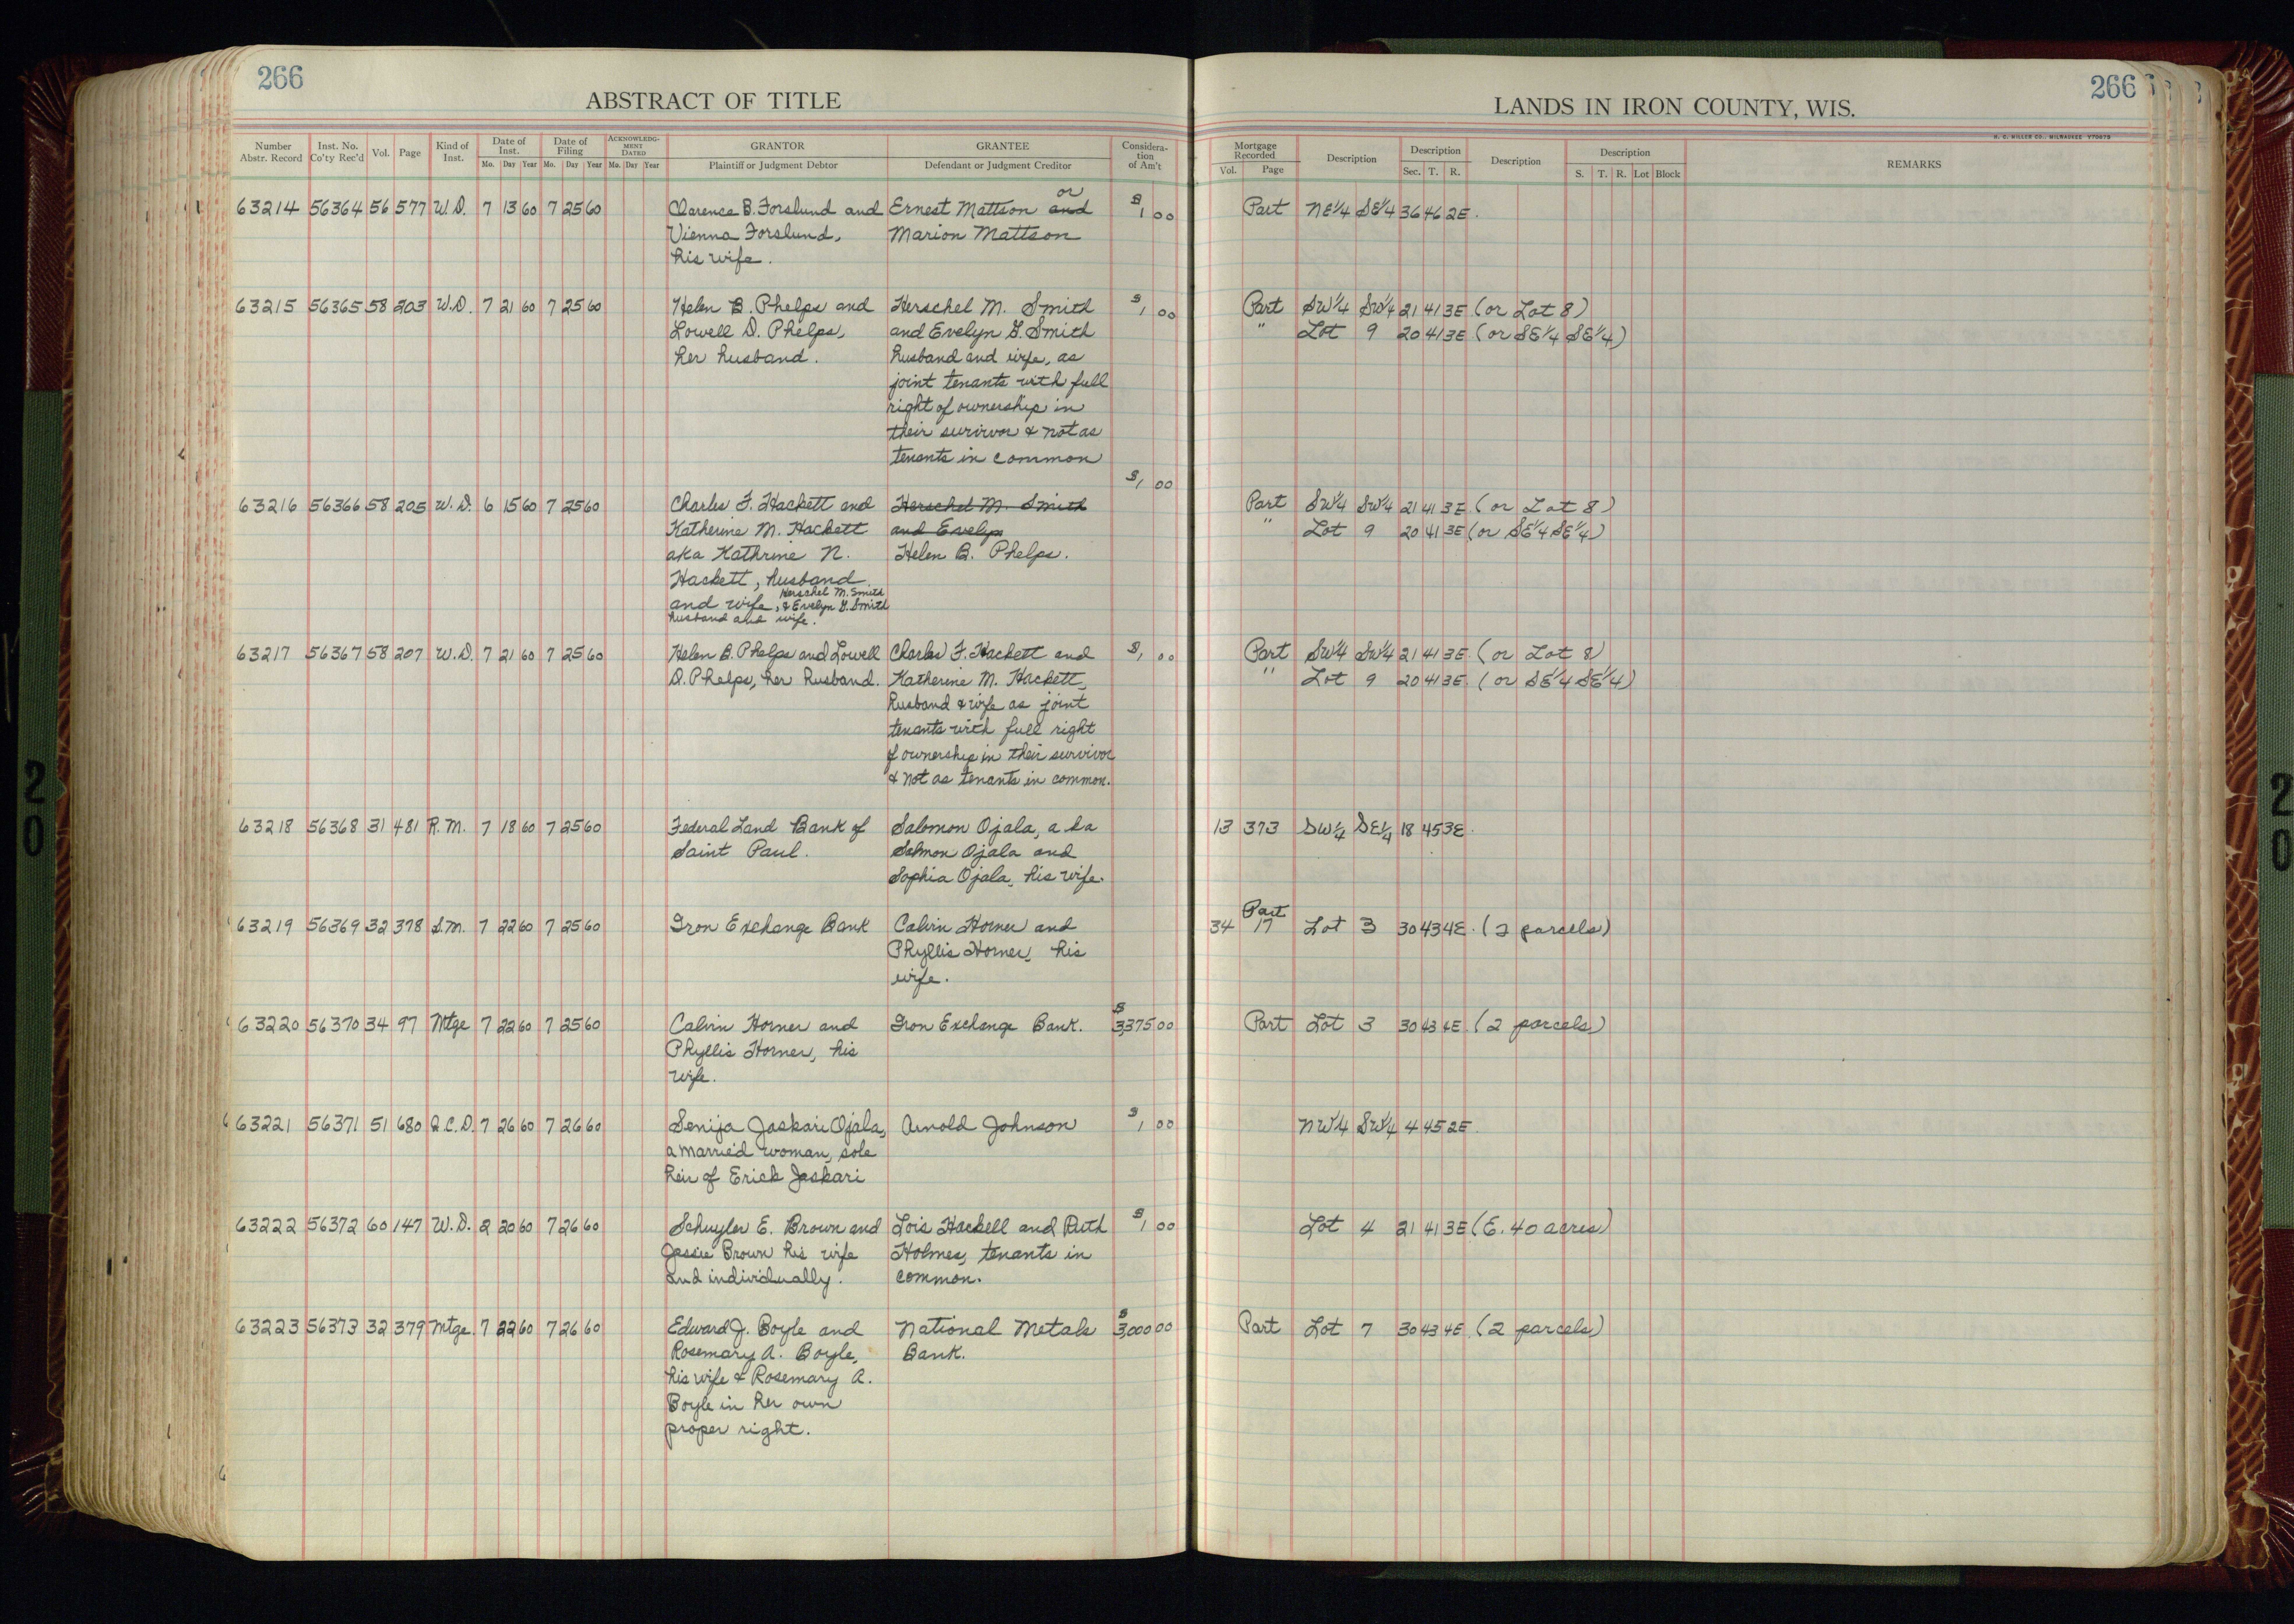 266
ABSTRACT OF TITLE
LANDS IN IRON COUNTY, WIS.
266
H. C. MILLER CO., MILWAUKEE V70879
Number Abstr. Record Inst. No. Co'ty Rec'd Vol. Page Kind of Inst. Date of Inst. Mo. Day Year Date of Filing Mo. Day Year ACKNOWLEDGMENT DATED Mo. Day Year GRANTOR Plaintiff or Judgment Debtor GRANTEE Defendant or Judgment Creditor Consideration of Am't Mortgage Recorded Vol. Page Description Description Sec. T. R. Description Description S. T. R. Lot Block REMARKS
or
63214 56364 56 577 W.D. 7 13 60 7 25 60 Clarence B. Forslund and Ernest Mattson and $1 00 Part NE1/4 SE1/4 36 46 2E.
Vienna Forslund, Marion Mattson
his wife.
63215 56365 58 203 W.D. 7 21 60 7 25 60 Helen B. Phelps and Herschel M. Smith $1 00 Part SW1/4 SW1/4 21 41 3E (or Lot 8)
Lowell D. Phelps, and Evelyn G. Smith " Lot 9 20 41 3E (or SE1/4 SE1/4)
her husband. husband and wife, as
joint tenants with full
right of ownership in
their survivor & not as
tenants in common
$1 00
63216 56366 58 205 W.D. 6 15 60 7 25 60 Charles F. Hackett and Herschel M. Smith Part SW1/4 SW1/4 21 41 3E (or Lot 8)
Katherine M. Hackett and Evelyn " Lot 9 20 41 3E (or SE1/4 SE1/4)
aka Kathrine N. Helen B. Phelps.
Hackett, husband
Herschel M. Smith
and wife, & Evelyn G. Smith
husband and wife.
63217 56367 58 207 W.D. 7 21 60 7 25 60 Helen B. Phelps and Lowell Charles F. Hackett and $1 00 Part SW1/4 SW1/4 21 41 3E (or Lot 8)
D. Phelps, her husband. Katherine M. Hackett, " Lot 9 20 41 3E. (or SE1/4 SE1/4)
husband & wife as joint
tenants with full right
of ownership in their survivor
& not as tenants in common.
63218 56368 31 481 R.M. 7 18 60 7 25 60 Federal Land Bank of Salomon Ojala, aka 13 373 SW1/4 SE1/4 18 45 3E.
Saint Paul. Salmon Ojala and
Sophia Ojala, his wife.
Part
63219 56369 32 378 S.M. 7 22 60 7 25 60 Iron Exchange Bank Calvin Horner and 34 17 Lot 3 30 43 4E. (2 parcels)
Phyllis Horner, his
wife.
63220 56370 34 97 Mtge 7 22 60 7 25 60 Calvin Horner and Iron Exchange Bank. $3,375 00 Part Lot 3 30 43 4E. (2 parcels)
Phyllis Horner, his
wife.
63221 56371 51 680 Q.C.D. 7 26 60 7 26 60 Senija Jaskari Ojala, Arnold Johnson $1 00 NW1/4 SW1/4 4 45 2E.
a married woman, sole
heir of Erick Jaskari
63222 56372 60 147 W.D. 2 20 60 7 26 60 Schuyler E. Brown and Lois Hackell and Ruth $1 00 Lot 4 21 41 3E (E. 40 acres)
Jessie Brown his wife Holmes, tenants in
and individually. common.
63223 56373 32 379 Mtge. 7 22 60 7 26 60 Edward J. Boyle and National Metals $3,000 00 Part Lot 7 30 43 4E. (2 parcels)
Rosemary A. Boyle, Bank.
his wife & Rosemary A.
Boyle in her own
proper right.
20
20